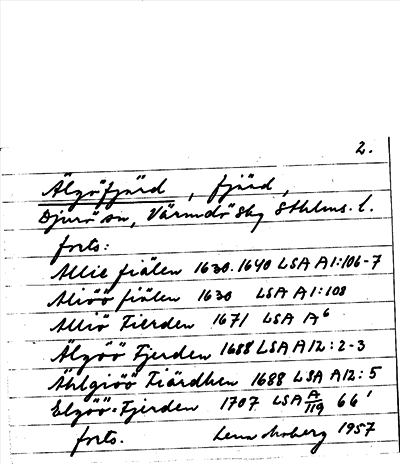 2.
Älgöfjärd, fjärd,
Djurö sn, Värmdö skg Sthlms. l.
forts:
Allie fiälen 1630. 1640 LSA A1:106-7
Aliöö fiälen 1630 LSA A1:108
Alliö Fierden 1671 LSA A6
Älgöö Fjerden 1688 LSA A12:2-3
Ählgiöö Fiärdhen 1688 LSA A12:5
Elgöö=Fjerden 1707 LSA A/119 66'
forts. Lena Moberg 1957